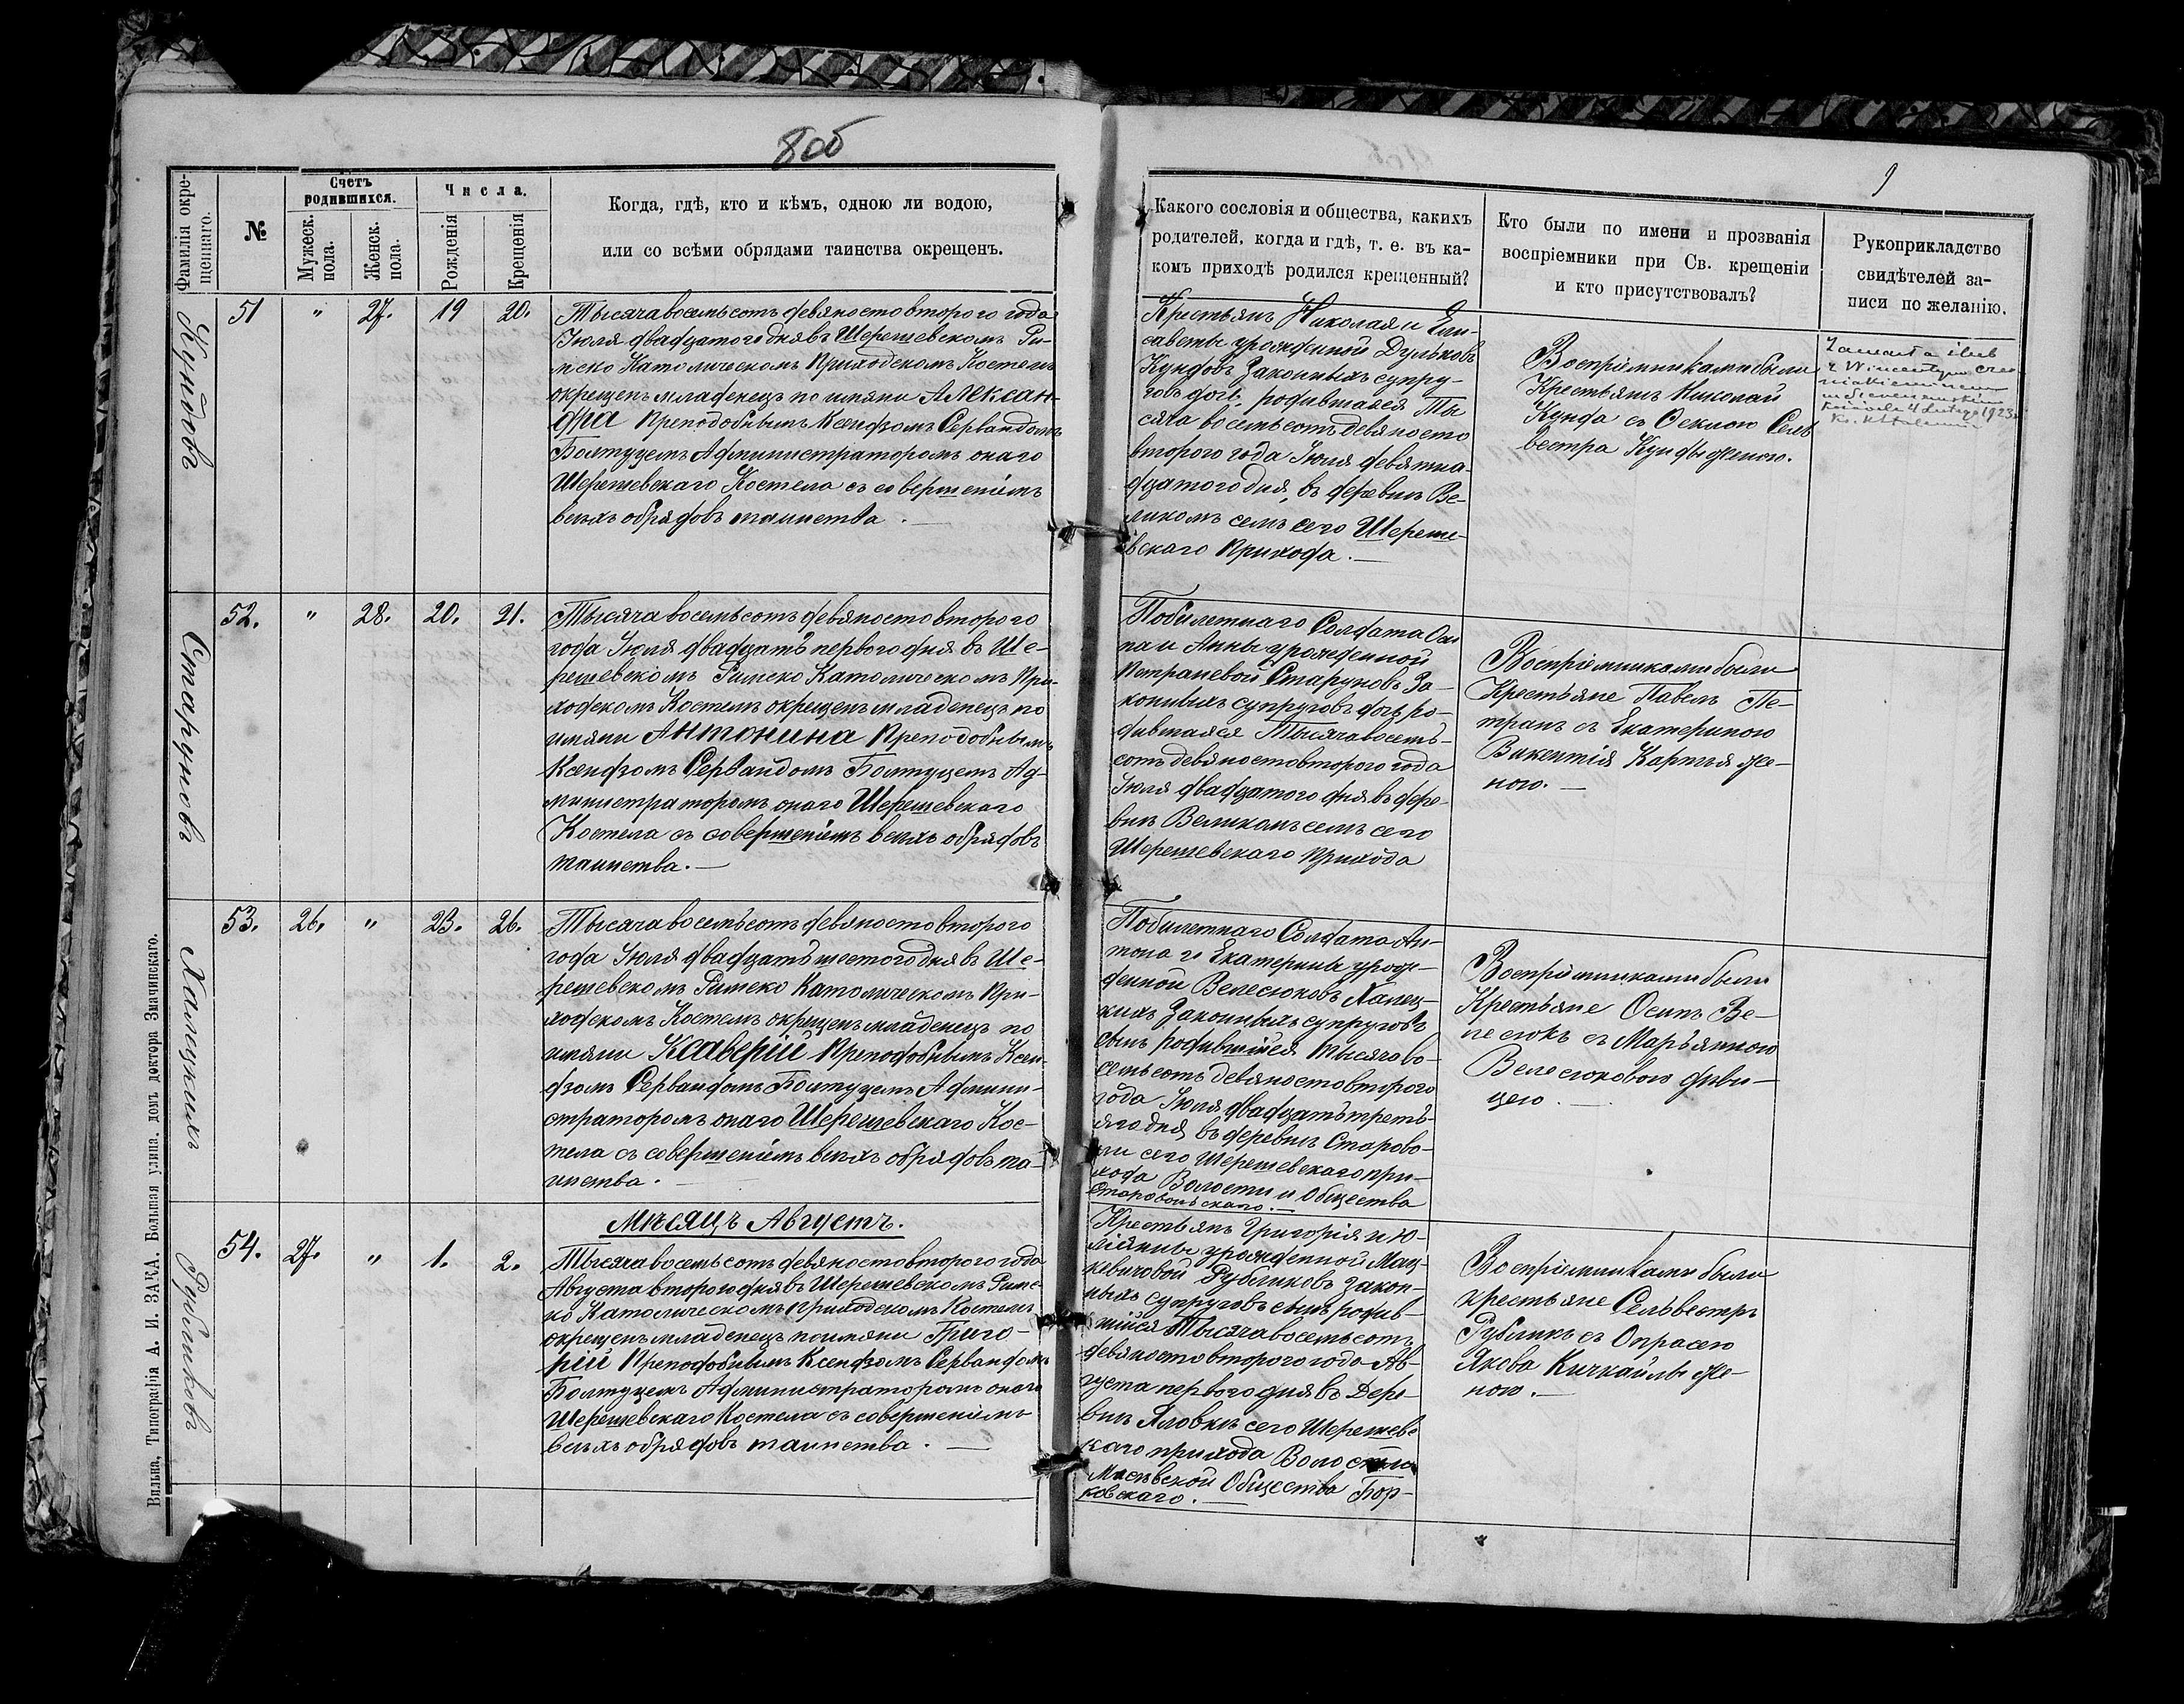 8об
9
Фамилія окре-
щеннаго.
№
Счетъ
родившихся.
Мужеск.
пола.
Женск.
пола.
Числа.
Рожденія
Крещенія
Когда, гдѣ, кто и кѣмъ, одною ли водою,
или со всѣми обрядами таинства окрещенъ.
Какого сословія и общества, какихъ
родителей, когда и гдѣ, т. е. въ ка-
комъ приходѣ родился крещенный?
Кто были по имени и прозванія
воспріемники при Св. крещеніи
и кто присутствовалъ?
Рукоприкладство
свидѣтелей за-
писи по желанію.
Кундовъ
51 " 27. 19 20.
Тысяча восемьсотъ девяносто второго года
Іюля двадцатого дня въ Шерешевскомъ Ри-
мско Католическомъ Приходскомъ Костелѣ
окрещенъ младенецъ по имяни Алексан-
дра Преподобнымъ Ксендзомъ Сервандомъ
Болтуцемъ Администраторомъ онаго
Шерешевскаго Костела съ совершеніемъ
всѣхъ обрядовъ таинства.
Крестьянъ Николая и Ели-
саветы урожденной Дульковъ
Кундовъ Законныхъ супру-
говъ дочь, родившаяся Ты
сяча восемьсотъ девяносто
второго года Іюля девятна-
дцатого дня, въ деревнѣ Ве-
ликомъ селѣ сего Шереше-
вскаго Прихода.
Воспріемниками были
Крестьянъ Николай
Кунда съ Феклою Селъ
вестра Кунды женою.
z Wincentym
4 Lutego 1923
Старуновъ
52. " 28. 20. 21.
Тысяча восемьсотъ девяносто второго
года Іюля двадцать первого дня въ Ше-
решевскомъ Римско Католическомъ При-
ходскомъ Костелѣ окрещенъ младенецъ по
имяни Антонина Преподобнымъ
Ксендзомъ Сервандомъ Болтуцемъ Ад-
министраторомъ онаго Шерешевскаго
Костела съ совершеніемъ всѣхъ обрядовъ
таинства.
Побилетнаго Солдата Оси
па и Анны урожденной
Петраневой Старуновъ За-
конныхъ супруговъ дочь ро-
дившаяся Тысяча восемь-
сотъ девяносто второго года
Іюля двадцатого дня въ дере-
внѣ Великомъ селѣ сего
Шерешевскаго прихода
Воспріемниками были
Крестьяне Павелъ Пе-
транъ съ Екатериною
Викентія Карпъя же-
ною.
Халецкихъ
53. 26. " 23. 26.
Тысяча восемьсотъ девяносто второго
года Іюля двадцать шестого дня въ Ше-
решевскомъ Римско Католическомъ При-
ходскомъ Костелѣ окрещенъ младенецъ по
имяни Ксаверій Преподобнымъ Ксен-
дзомъ Сервандомъ Болтуцемъ Админи-
страторомъ онаго Шерешевскаго Кос-
тела съ совершеніемъ всѣхъ обрядовъ та-
инства.
Побилетнаго Солдата Ан-
тона и Екатерины урож-
денной Велесюковъ Халец-
кихъ Законныхъ супруговъ
сынъ родившійся Тысяча во-
семьсотъ девяносто второго
года Іюля двадцать треть-
яго дня въ деревнѣ Старово-
ли сего Шерешевскаго при-
хода Волости и Общества
Старовольскаго.
Воспріемниками были
Крестьяне Осипъ Ве-
лесюкъ съ Марьянною
Велесюковою дѣви-
цею.
Рубликовъ
Мѣсяцъ Августъ.
54. 27. " 1. 2.
Тысяча восемьсотъ девяносто второго года
Августа второго дня въ Шерешевскомъ Римс-
ко Католическомъ приходскомъ Костелѣ
окрещенъ младенецъ по имяни Григо-
рій Преподобнымъ Ксендзомъ Сервандомъ
Болтуцемъ Администраторомъ онаго
Шерешевскаго Костела съ совершеніемъ
всѣхъ обрядовъ таинства.
Крестьянъ Григорія и Ю-
ліянны урожденной Мац-
кевичовой Рубликовъ закон-
ныхъ супруговъ сынъ родив-
шійся Тысяча восемьсотъ
девяносто второго года Ав-
густа первого дня въ Дере-
внѣ Яловкѣ сего Шерешевс
каго прихода Волости
Масѣвской Общества Бор-
ковскаго.
Воспріемниками были
крестьяне Сельвестръ
Рубликъ съ Опрасею
Якова Кичкайлы же-
ною.
Вильна, Типографія А. И. ЗАКА. Большая улица, домъ доктора Значинскаго.